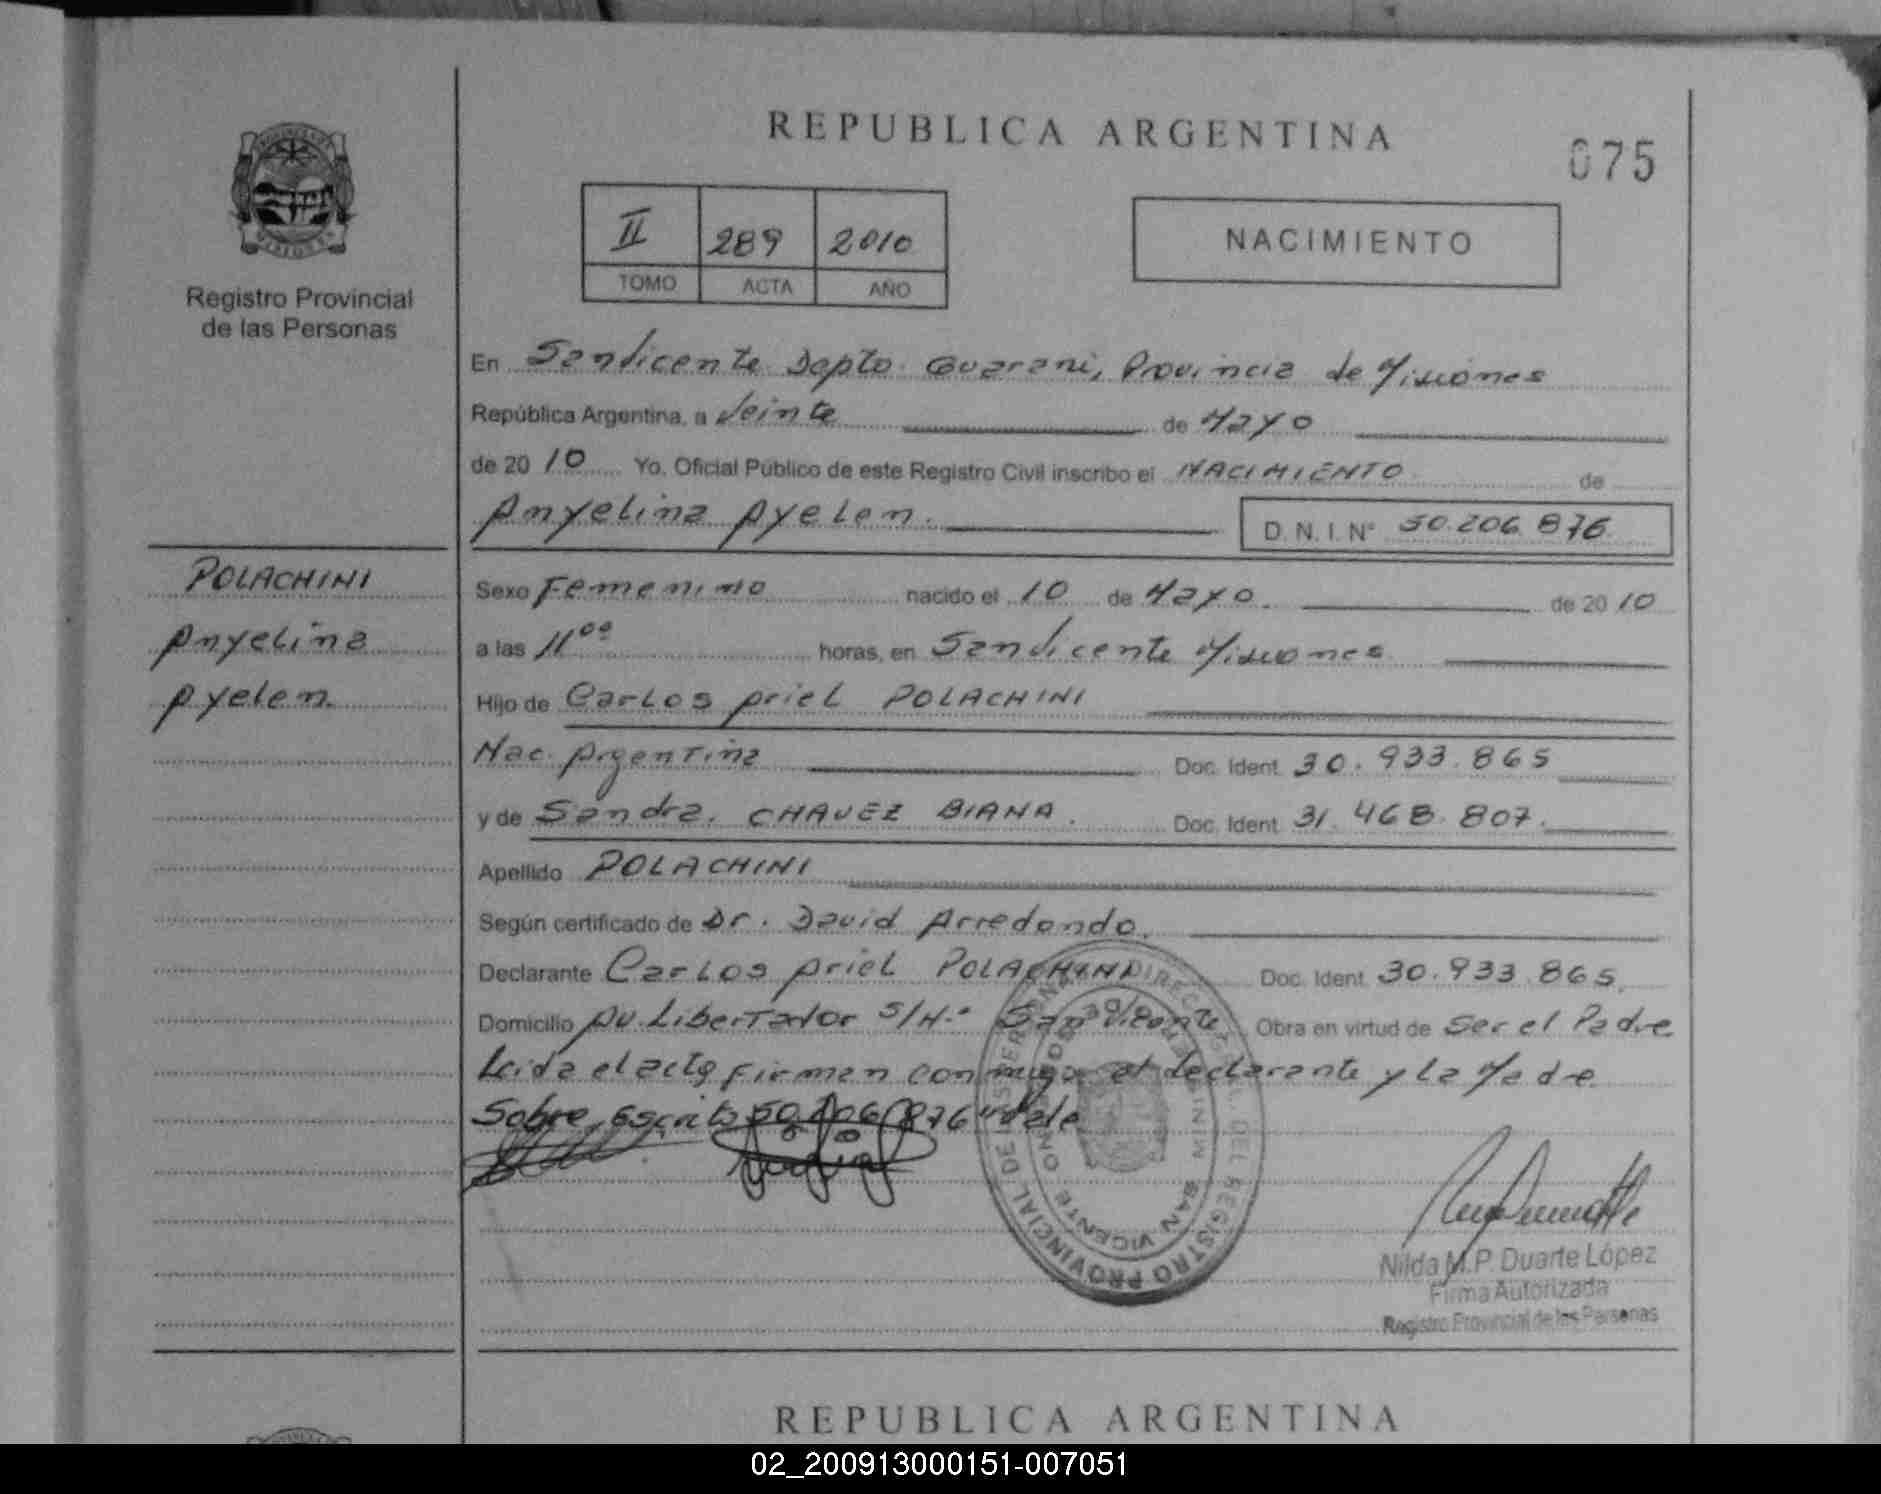 REPUBLICA ARGENTINA
075
II 289 2010
TOMO ACTA AÑO
NACIMIENTO
Registro Provincial
de las Personas
En San Vicente Depto. Guarani, Provincia de Misiones
República Argentina, a Veinte de Mayo
de 2010 Yo. Oficial Público de este Registro Civil inscribo el NACIMIENTO de
Anyelina Ayelen. D. N. I. N° 50.206.876.
POLACHINI
Anyelina
Ayelen.
Sexo Femenino nacido el 10 de Mayo. de 2010
a las 11⁰⁰ horas, en San Vicente Misiones
Hijo de Carlos Ariel POLACHINI
Nac. Argentina Doc. Ident. 30.933.865
y de Sandra. CHAVEZ VIANA. Doc. Ident. 31.468.807.
Apellido POLACHINI
Según certificado de Dr. David Arredondo.
Declarante Carlos Ariel POLACHINI Doc. Ident. 30.933.865.
Domicilio Av. Libertador S/N.° San Vicente Obra en virtud de Ser el Padre
Leida el acta firman conmigo el declarante y la Madre
Sobre escrito 50.206.876 "Vale
REGISTRO PROVINCIAL DE
SAN VICENTE
Nilda M.P. Duarte López
Firma Autorizada
Registro Provincial de las Personas
REPUBLICA ARGENTINA
02_200913000151-007051